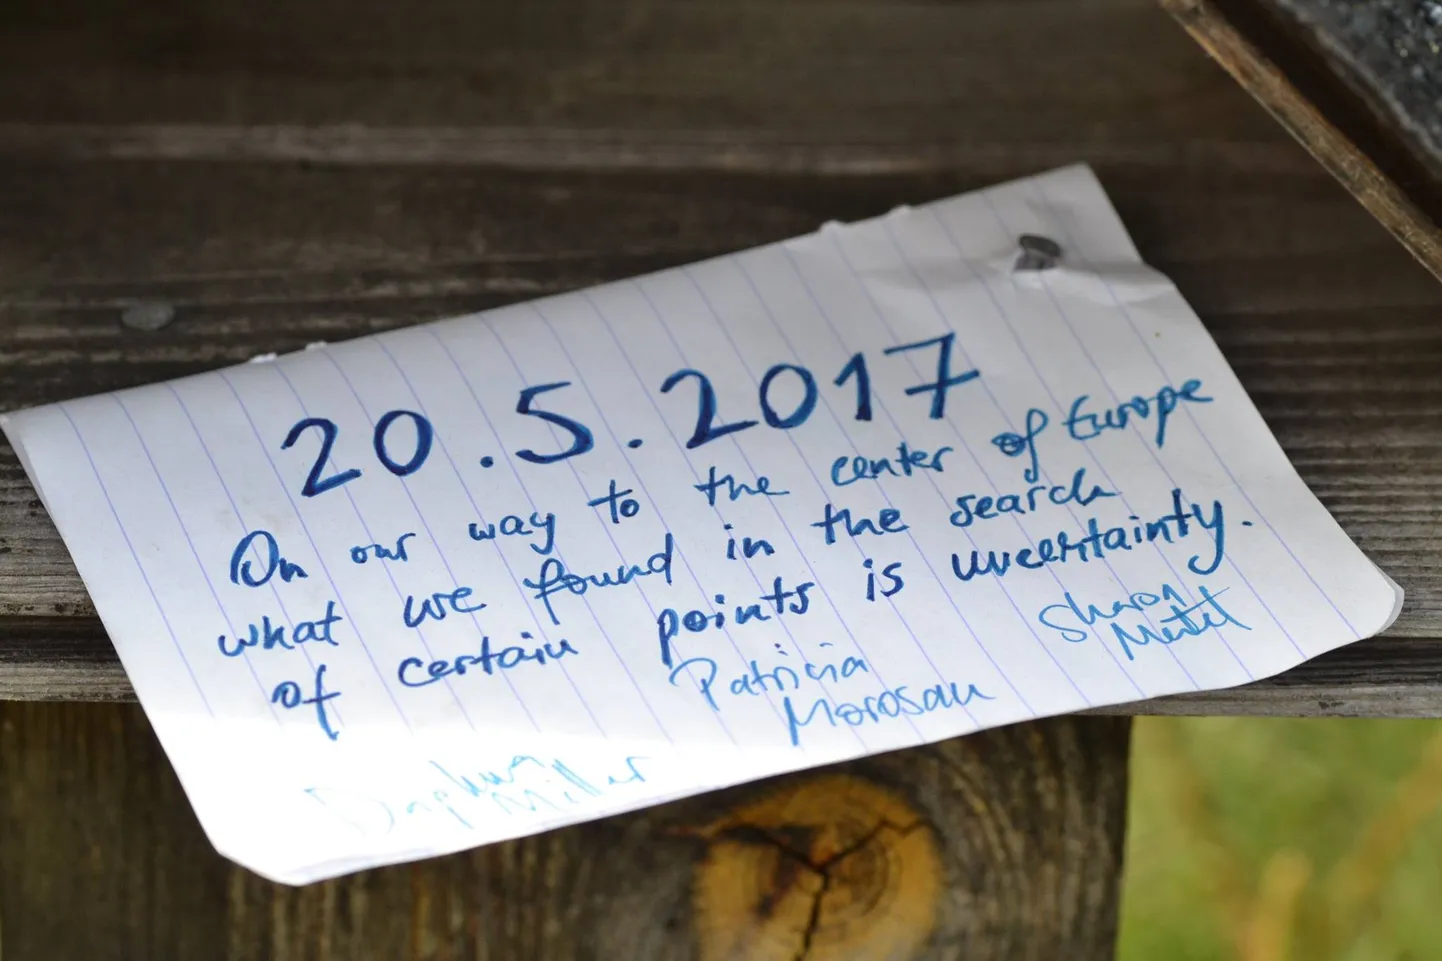 20.5.2017
On our way to the center of Europe
what we found in the search
of certain points is uncertainty.
Sharon
Patricia
Morosan
Miller